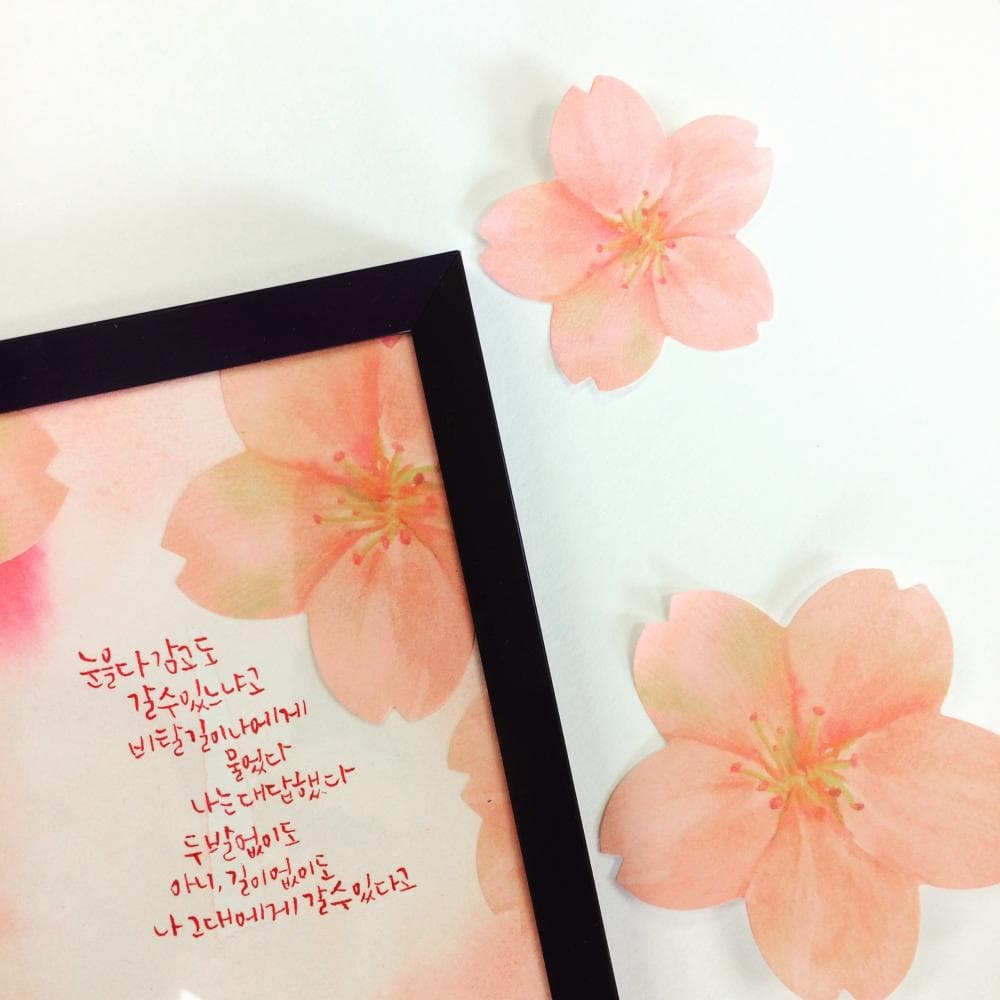 눈을 다 감고도
갈 수 있느냐고
비탈길이 나에게
물었다
나는 대답했다
두 발 없이도
아니, 길이 없이도
나 그대에게 갈 수 있다고